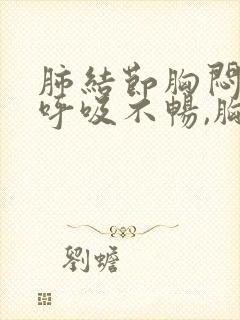 肺結節胸悶
呼吸不暢,胸
劉蟾